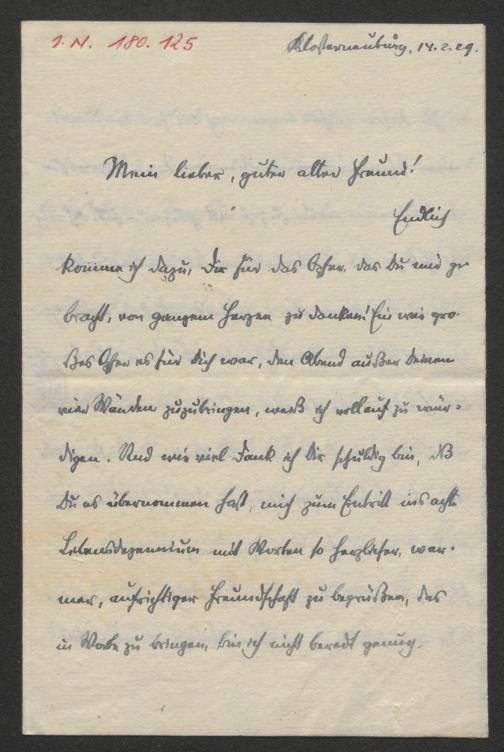 I. N. 180.125
Klosterneuburg, 14.2.29.
Mein lieber, guter alter Freund!
Endlich
komme ich dazu, Dir für das Opfer, das Du mir ge-
bracht, von ganzem Herzen zu danken! Ein wie gro-
ßes Opfer es für Dich war, den Abend außer Deinen
vier Wänden zuzubringen, weiß ich vollauf zu wür-
digen. Und wie viel Dank ich Dir schuldig bin, daß
Du es übernommen hast, mich zum Eintritt ins achte
Lebensdezennium mit Worten so herzlicher, war-
mer, aufrichtiger Freundschaft zu begrüßen, das
in Worte zu bringen, bin ich nicht beredt genug.